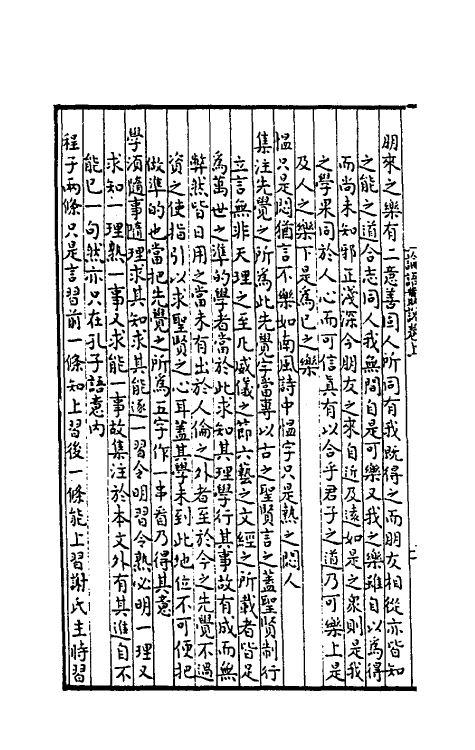 朋來之樂有二意善固人所同有我既得之而朋友相從亦皆知
之能之道合志同人我無間自是可樂又我之樂雖自以為得
而尚未知邪正淺深今朋友之來自近及遠如是之衆則是我
之學果同於人心而可信真有以合乎君子之道乃可樂上是
及人之樂下是為已之樂
愠只是悶猶言不樂如南風詩中愠字只是熱之悶人
集注先覺之所為此先覺字當專以古之聖賢言之蓋聖賢制行
立言無非天理之至凡威儀之節六藝之文經之所載者皆足
為萬世之準的學者當於此求知其理學行其事故有成而無
弊然皆日用之當未有出於人倫之外者至於今之先覺不過
資之使指引以求聖賢之心耳蓋其學未到此地位不可便把
做準的也當把先覺之所為五字作一串看乃得其意
學須隨事隨理求其知求其能逐一習令明習令熟必明一理又
求知一理熟一事又求能一事故集注於本文外有其進自不
能已一句然亦只在孔子語意内
程子兩條只是言習前一條知上習後一條能上習謝氏主時習